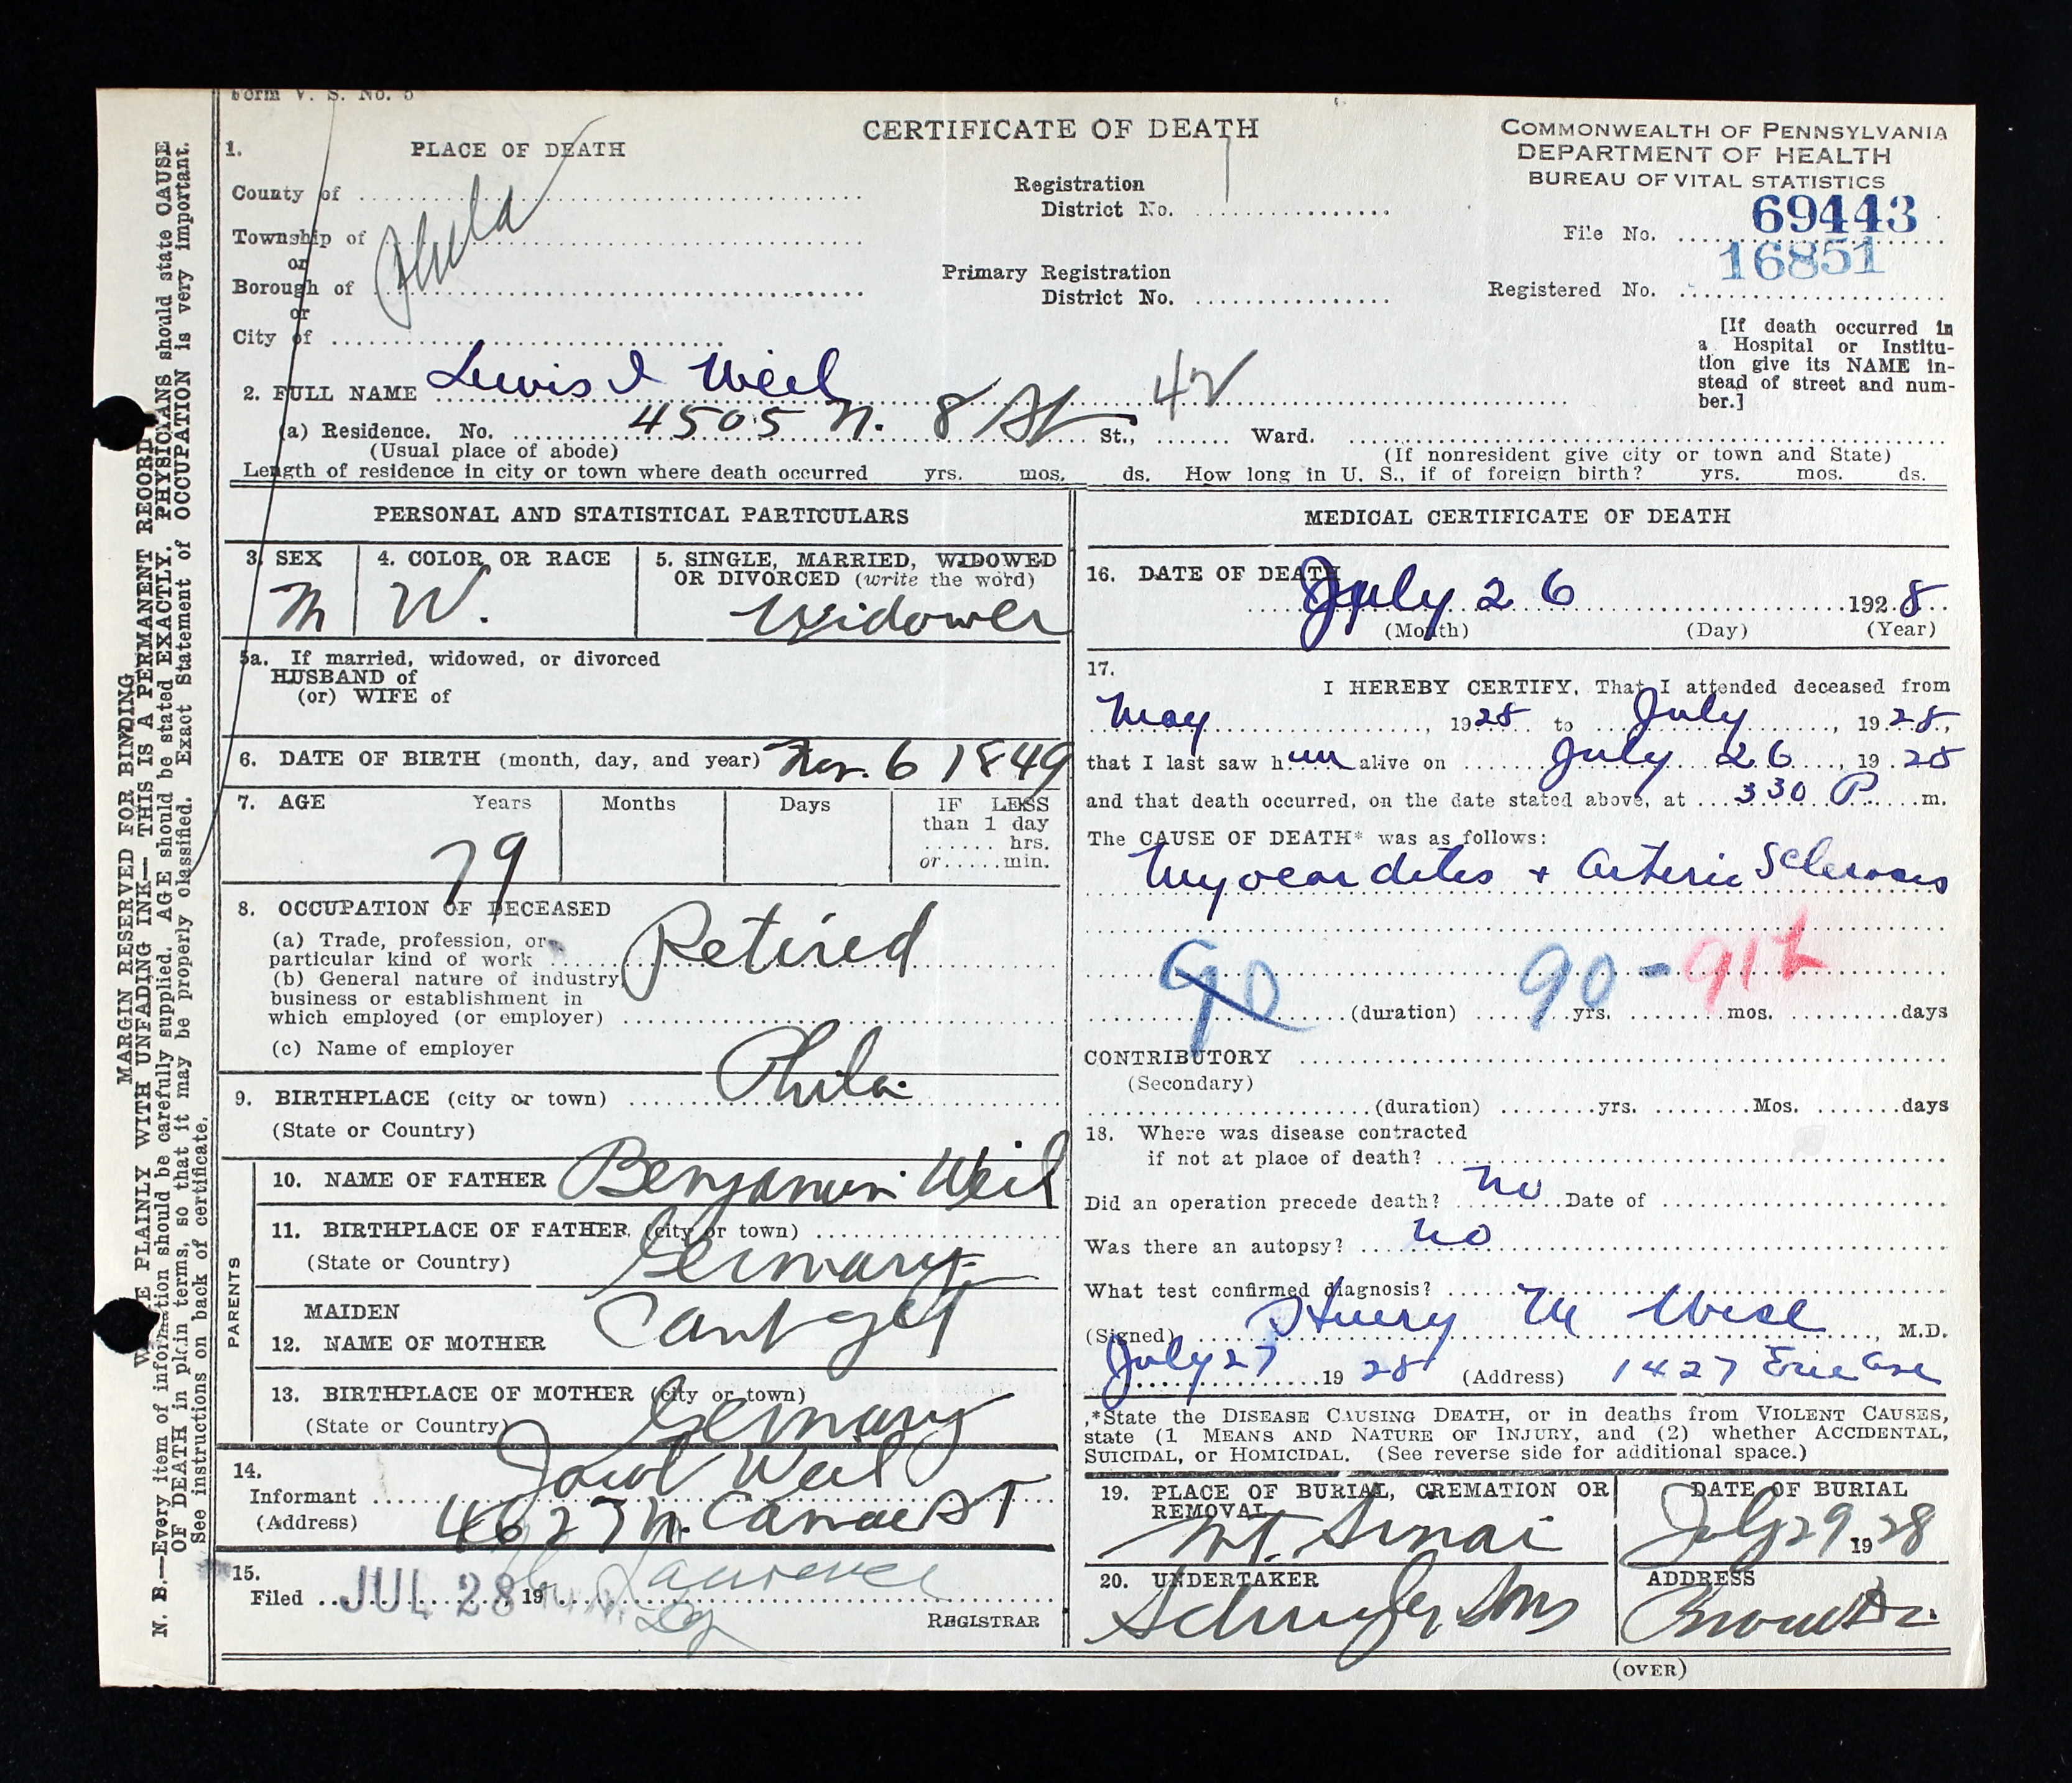 Form V. S. No. 5
CERTIFICATE OF DEATH
COMMONWEALTH OF PENNSYLVANIA
DEPARTMENT OF HEALTH
BUREAU OF VITAL STATISTICS
1. PLACE OF DEATH
County of
Township of
or
Borough of
or
City of
Phila
Registration
District No.
Primary Registration
District No.
File No. 69443
16851
Registered No.
[If death occurred in
a Hospital or Institu-
tion give its NAME in-
stead of street and num-
ber.]
2. FULL NAME Lewis I Weil
(a) Residence. No. 4505 N. 8 St St., 42 Ward.
(Usual place of abode)
(If nonresident give city or town and State)
Length of residence in city or town where death occurred yrs. mos. ds. How long in U. S., if of foreign birth? yrs. mos. ds.
PERSONAL AND STATISTICAL PARTICULARS
3. SEX
M
4. COLOR OR RACE
W.
5. SINGLE, MARRIED, WIDOWED
OR DIVORCED (write the word)
Widower
5a. If married, widowed, or divorced
HUSBAND of
(or) WIFE of
6. DATE OF BIRTH (month, day, and year) Nov. 6 1849
7. AGE Years Months Days IF LESS
than 1 day
...... hrs.
or.....min.
79
8. OCCUPATION OF DECEASED
(a) Trade, profession, or
particular kind of work Retired
(b) General nature of industry,
business or establishment in
which employed (or employer)
(c) Name of employer
9. BIRTHPLACE (city or town) Phila.
(State or Country)
PARENTS
10. NAME OF FATHER Benjamin Weil
11. BIRTHPLACE OF FATHER (city or town)
(State or Country) Germany
MAIDEN
12. NAME OF MOTHER Cant get
13. BIRTHPLACE OF MOTHER (city or town)
(State or Country) Germany
14.
Informant Jacob Weil
(Address) 4627 N. Camac St
15.
Filed JUL 28 19
REGISTRAR
MEDICAL CERTIFICATE OF DEATH
16. DATE OF DEATH
July 26 1928
(Month) (Day) (Year)
17.
I HEREBY CERTIFY, That I attended deceased from
May, 1928 to July, 1928,
that I last saw him alive on July 26, 1928
and that death occurred, on the date stated above, at 330 P m.
The CAUSE OF DEATH* was as follows:
Myocarditis + Arterio Sclerosis
90 90-91b
(duration) yrs. mos. days
CONTRIBUTORY
(Secondary)
(duration) yrs. Mos. days
18. Where was disease contracted
if not at place of death?
Did an operation precede death? No Date of
Was there an autopsy? No
What test confirmed diagnosis?
(Signed) Henry M Weil, M.D.
July 27 19 28 (Address) 1427 Erie Ave
*State the DISEASE CAUSING DEATH, or in deaths from VIOLENT CAUSES,
state (1 MEANS AND NATURE OF INJURY, and (2) whether ACCIDENTAL,
SUICIDAL, or HOMICIDAL. (See reverse side for additional space.)
19. PLACE OF BURIAL, CREMATION OR
REMOVAL
Mt. Sinai
DATE OF BURIAL
July 29 1928
20. UNDERTAKER
Sons
ADDRESS
(OVER)
MARGIN RESERVED FOR BINDING
PLAINLY WITH UNFADING INK— THIS IS A PERMANENT RECORD
N. B.—Every item of information should be carefully supplied. AGE should be stated EXACTLY. PHYSICIANS should state CAUSE
OF DEATH in plain terms, so that it may be properly classified. Exact Statement of OCCUPATION is very important.
See instructions on back of certificate.